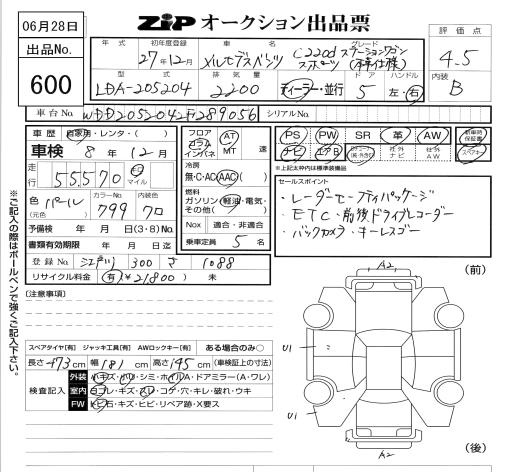 06月28日
ZiP オークション出品票
出品No.
600
年式 初年度登録 車名 グレード
27年12月 メルセデスベンツ C220d ステーションワゴン スポーツ (本革仕様)
評価点
4.5
内装
B
型式 排気量 ドア ハンドル
LDA-205204 2200 ディーラー・並行 5 左・右
車台No. WDD2052042F289056 シリアルNo.
車歴 自家用・レンタ・( )
車検 8年12月
走行 55570 キロ マイル
色 パール (元色) カラーNo. 799 内装色 クロ
予備検 年 月 日(3・8)No.
書類有効期限 年 月 日迄
登録No. 江戸川 300 さ 1088
リサイクル料金 有(¥21,800) 未
フロア コラム インパネ AT MT 速
冷房
無・C・AC・AAC( )
燃料
ガソリン・軽油・電気・その他( )
Nox 適合・非適合
乗車定員 5 名
PS PW SR 革 AW 新車時保証書
ナビ エアB 社外ナビ 社外AW スペアキー
*上記太枠内は標準装備品
セールスポイント
・レーダーセーフティパッケージ
・ETC・前後ドライブレコーダー
・バックカメラ・キーレスゴー
※ご記入の際はボールペンで強くご記入下さい。
[注意事項]
スペアタイヤ[有] ジャッキ工具[有] AWロックキー[有] ある場合のみ○
長さ 473 cm 幅 181 cm 高さ 145 cm (車検証上の寸法)
検査記入
外装 小キズ・凹・シミ・ホイルA・ドアミラー(A・ワレ)
室内 ヨゴレ・キズ・スレ・コゲ・穴・キレ・破れ・ウキ
FW トビ石・キズ・ヒビ・リペア跡・X要ス
(前)
A2
U1
U1
A2
(後)